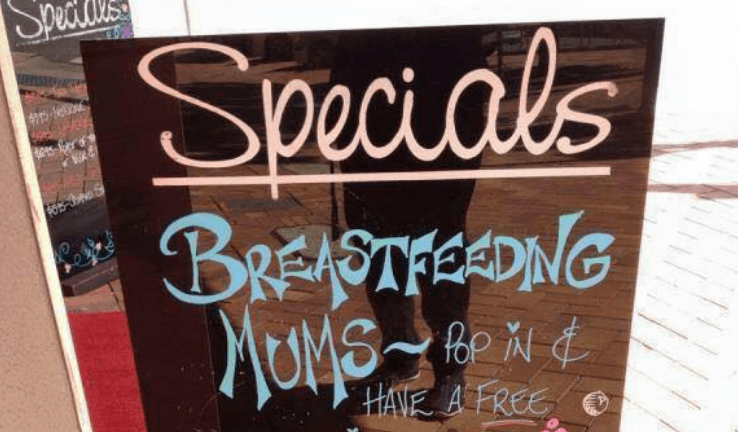 Specials
Specials
BREASTFEEDING
MUMS ~ POP IN &
HAVE A FREE